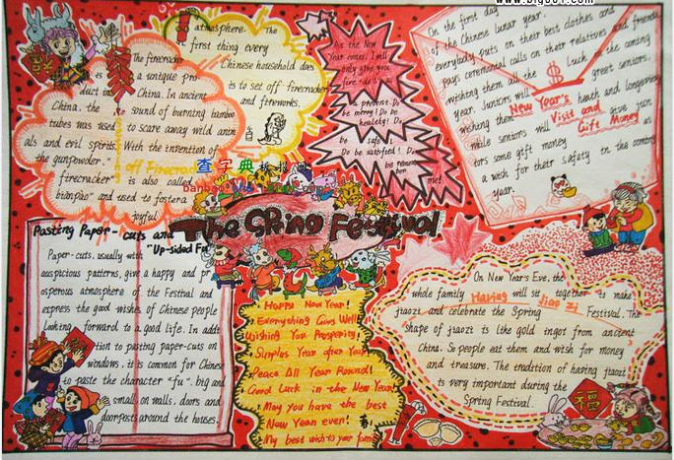 The firecracker
is a unique pro
duct in China. In ancient
China, the sound of burning bamboo
tubes was used to scare away wild anim
als and evil spirits. With the invention of
the gunpowder."
firecracker" is also called
bianpao" and used to foster a
joyful
atmosphere. The
first thing every
Chinese household does
is to set off firecrackers
and fireworks.
off Firecrac
查字典
As the New
Year comes, I will
only give you
Do
be merry! Do be
healthy! Do
be
Do be satisfied! Do
On the first day
of the Chinese lunar year,
everybody puts on their best clothes and
pays ceremonial calls on their relatives and friends
wishing them all the Luck in the coming
year. Juniors will greet seniors.
wishing them health and longevity
New Year's
Visit and
Gift Money
while seniors will give jun
iors some gift money as
a wish for their safety in the coming
year.
The Spring Festival
Pasting Paper-cuts and
"Up-sided Fu"
Paper-cuts, usually with
auspicious patterns, give a happy and pr
osperous atmosphere of the Festival and
express the good wishes of Chinese people
looking forward to a good life. In addi
tion to pasting paper-cuts on
windows, it is common for Chinese
to paste the character "fu", big and
small, on walls, doors and
doorposts around the houses.
Happy New Year!
Everything Goes Well!
Wishing You Prosperity!
Surplus Year after Year
Peace All Year Round!
Good Luck in the New Year!
May you have the best
New Year ever!
My best wish to your family
On New Year's Eve, the
whole family will sit together to make
Having Jiao Zi
jiaozi and celebrate the Spring Festival. The
shape of jiaozi is like gold ingot from ancient
China. So people eat them and wish for money
and treasure. The tradition of having jiaozi
is very important during the
Spring Festival.
福